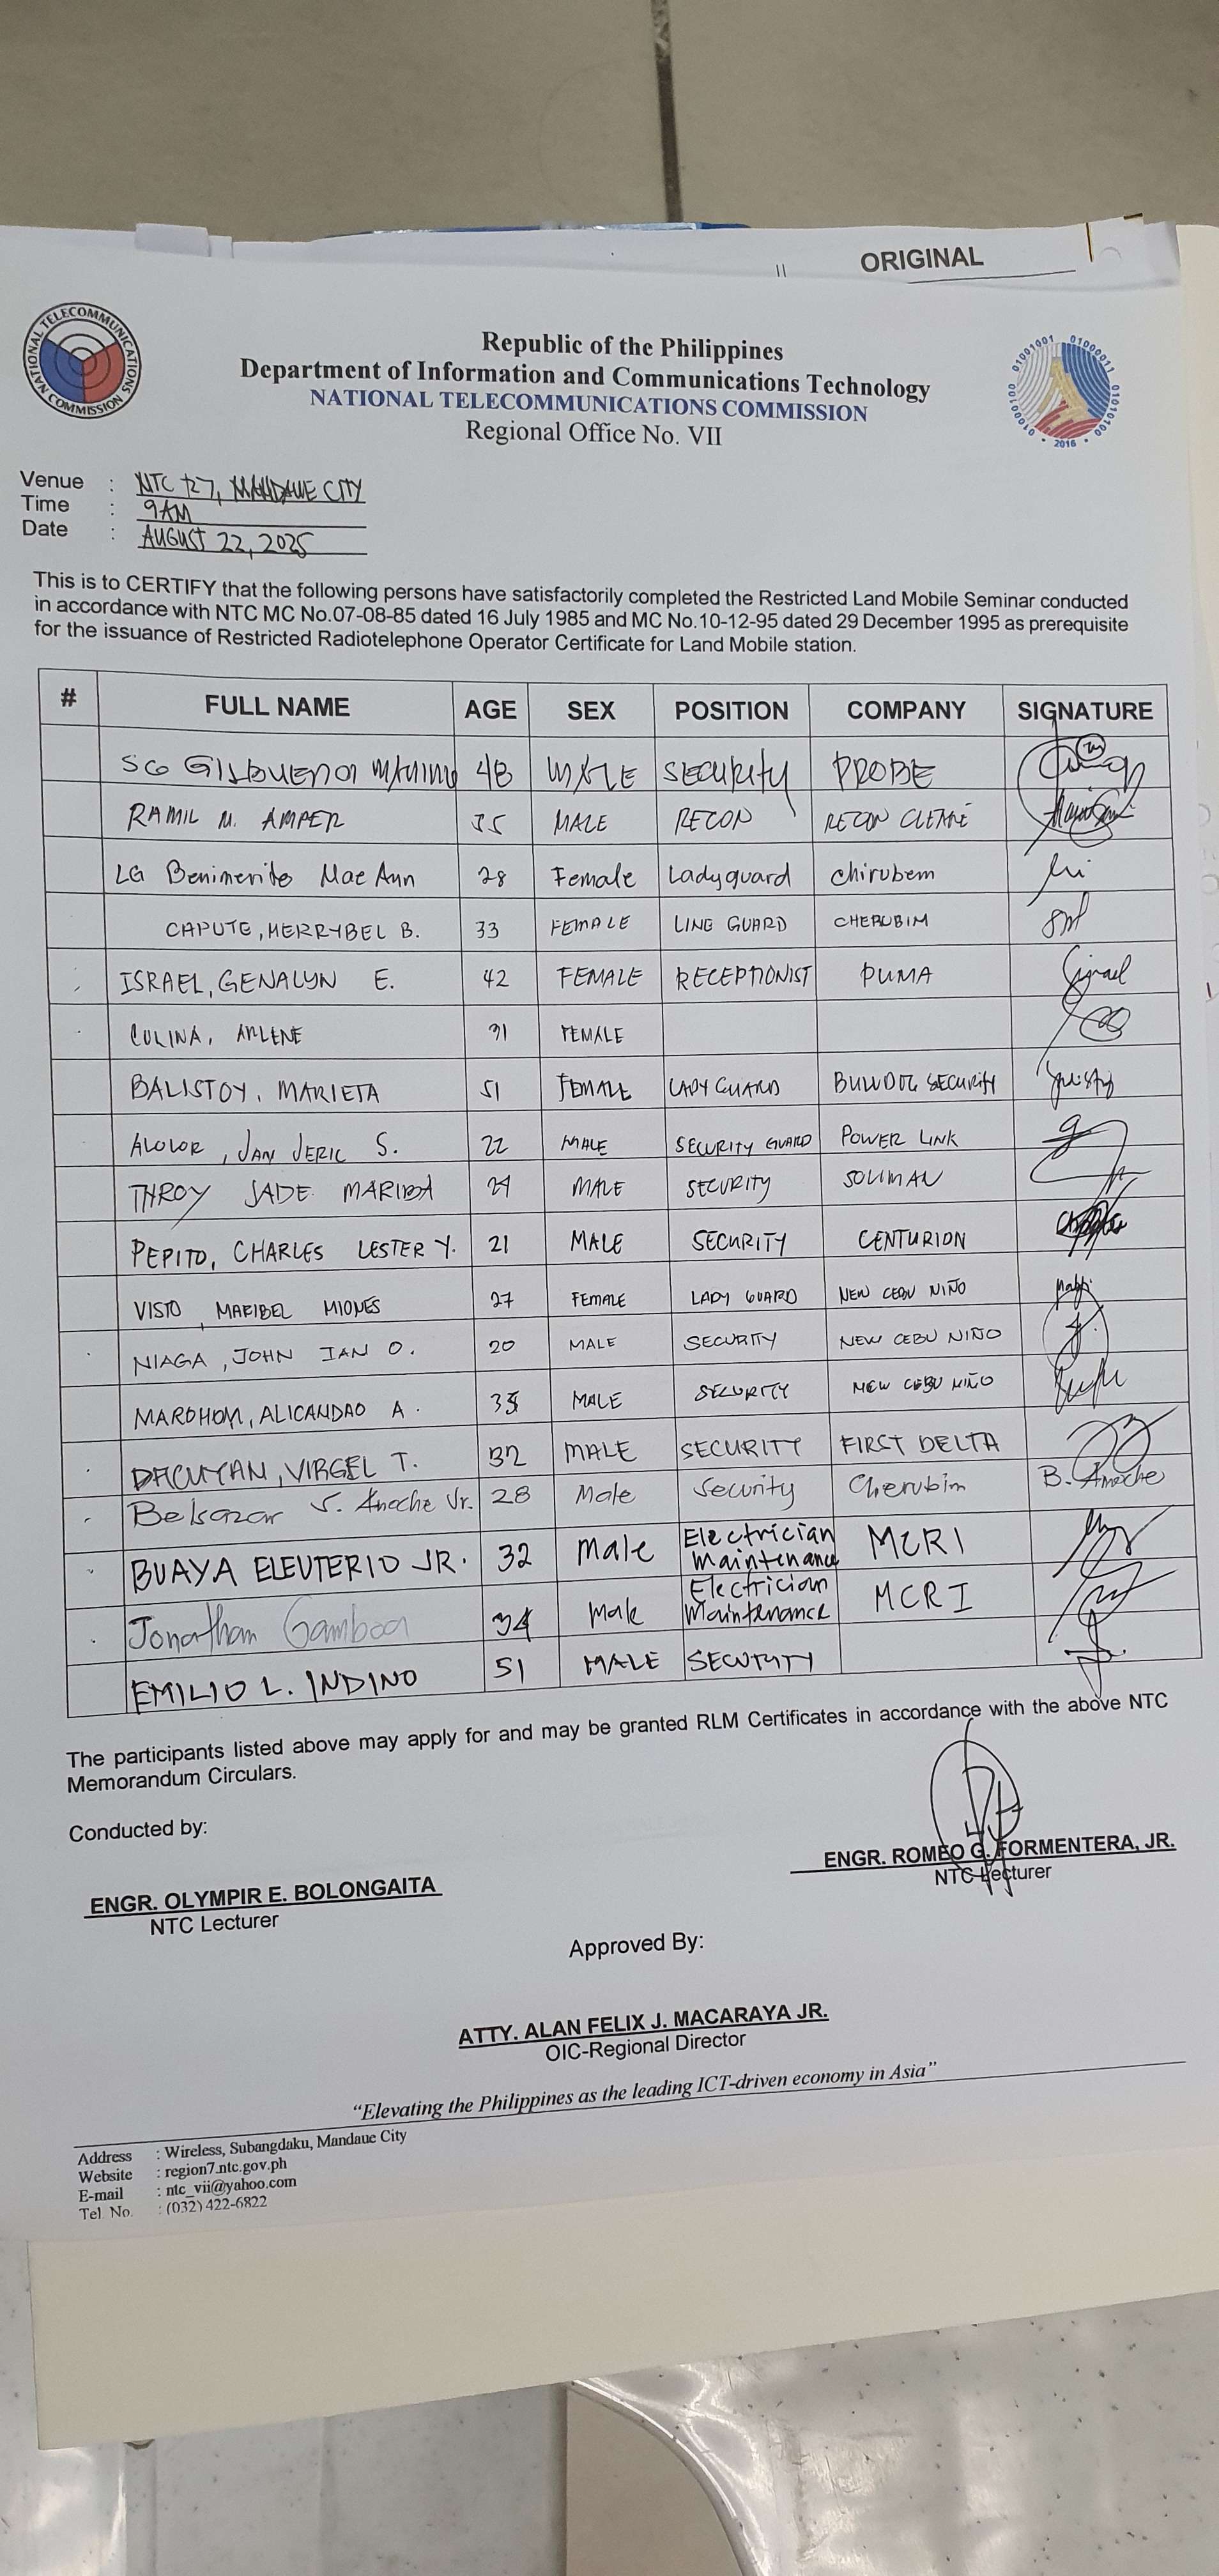 ORIGINAL
NATIONAL TELECOMMUNICATIONS COMMISSION
2016
Republic of the Philippines
Department of Information and Communications Technology
NATIONAL TELECOMMUNICATIONS COMMISSION
Regional Office No. VII
Venue : NTC R7, MANDAUE CITY
Time : 9AM
Date : AUGUST 22, 2025
This is to CERTIFY that the following persons have satisfactorily completed the Restricted Land Mobile Seminar conducted
in accordance with NTC MC No.07-08-85 dated 16 July 1985 and MC No.10-12-95 dated 29 December 1995 as prerequisite
for the issuance of Restricted Radiotelephone Operator Certificate for Land Mobile station.
# FULL NAME AGE SEX POSITION COMPANY SIGNATURE
SG Gilbuena 48 MALE SECURITY PROBE
RAMIL M. AMPER 35 MALE RECON RECON
LG Benimerito Mae Ann 28 Female Ladyguard chirubem
CAPUTE, MERRYBEL B. 33 FEMALE LING GUARD CHERUBIM
ISRAEL, GENALYN E. 42 FEMALE RECEPTIONIST PUMA
COLINA, ARLENE 31 FEMALE
BALISTOY, MARIETA 51 FEMALE LADY GUARD BULLDOG SECURITY
ALOLOR, JAN JERIC S. 22 MALE SECURITY GUARD POWER LINK
THROY JADE MARIBA MALE SECURITY SOLIMAN
PEPITO, CHARLES LESTER Y. 21 MALE SECURITY CENTURION
VISTO, MARIBEL MIONES 27 FEMALE LADY GUARD NEW CEBU NIÑO
NIAGA, JOHN IAN O. 20 MALE SECURITY NEW CEBU NIÑO
MAROHOM, ALICANDAO A. MALE SECURITY NEW CEBU NIÑO
DACUYAN, VIRGEL T. 32 MALE SECURITY FIRST DELTA
Belsazar S. Anoche Jr. 28 Male Security Cherubim B. Anoche
BUAYA ELEUTERIO JR. 32 Male Electrician Maintenance MCRI
Jonathan Gamboa 34 Male Electrician Maintenance MCRI
EMILIO L. INDINO 51 MALE SECURITY
The participants listed above may apply for and may be granted RLM Certificates in accordance with the above NTC
Memorandum Circulars.
Conducted by:
ENGR. OLYMPIR E. BOLONGAITA
NTC Lecturer
ENGR. ROMEO G. FORMENTERA, JR.
NTC Lecturer
Approved By:
ATTY. ALAN FELIX J. MACARAYA JR.
OIC-Regional Director
“Elevating the Philippines as the leading ICT-driven economy in Asia”
Address : Wireless, Subangdaku, Mandaue City
Website : region7.ntc.gov.ph
E-mail : ntc_vii@yahoo.com
Tel. No. : (032) 422-6822